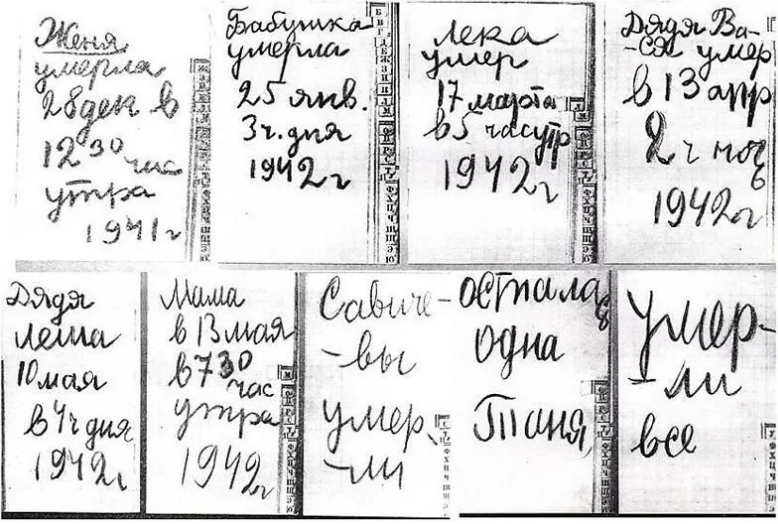 Женя
умерла
28 дек в
12 30 час
утра
1941 г
Бабушка
умерла
25 янв.
3 ч. дня
1942 г
Лека
умер
17 марта
в 5 час утр
1942 г
Дядя Ва-
-ся умер
в 13 апр
2 ч ночь
1942 г
Дядя
Леша
10 мая
в 4 ч дня
1942 г
Мама
в 13 мая
в 7 30 час
утра
1942 г
Савиче-
-вы
умер-
-ли
осталась
одна
Таня
Умер-
-ли
все